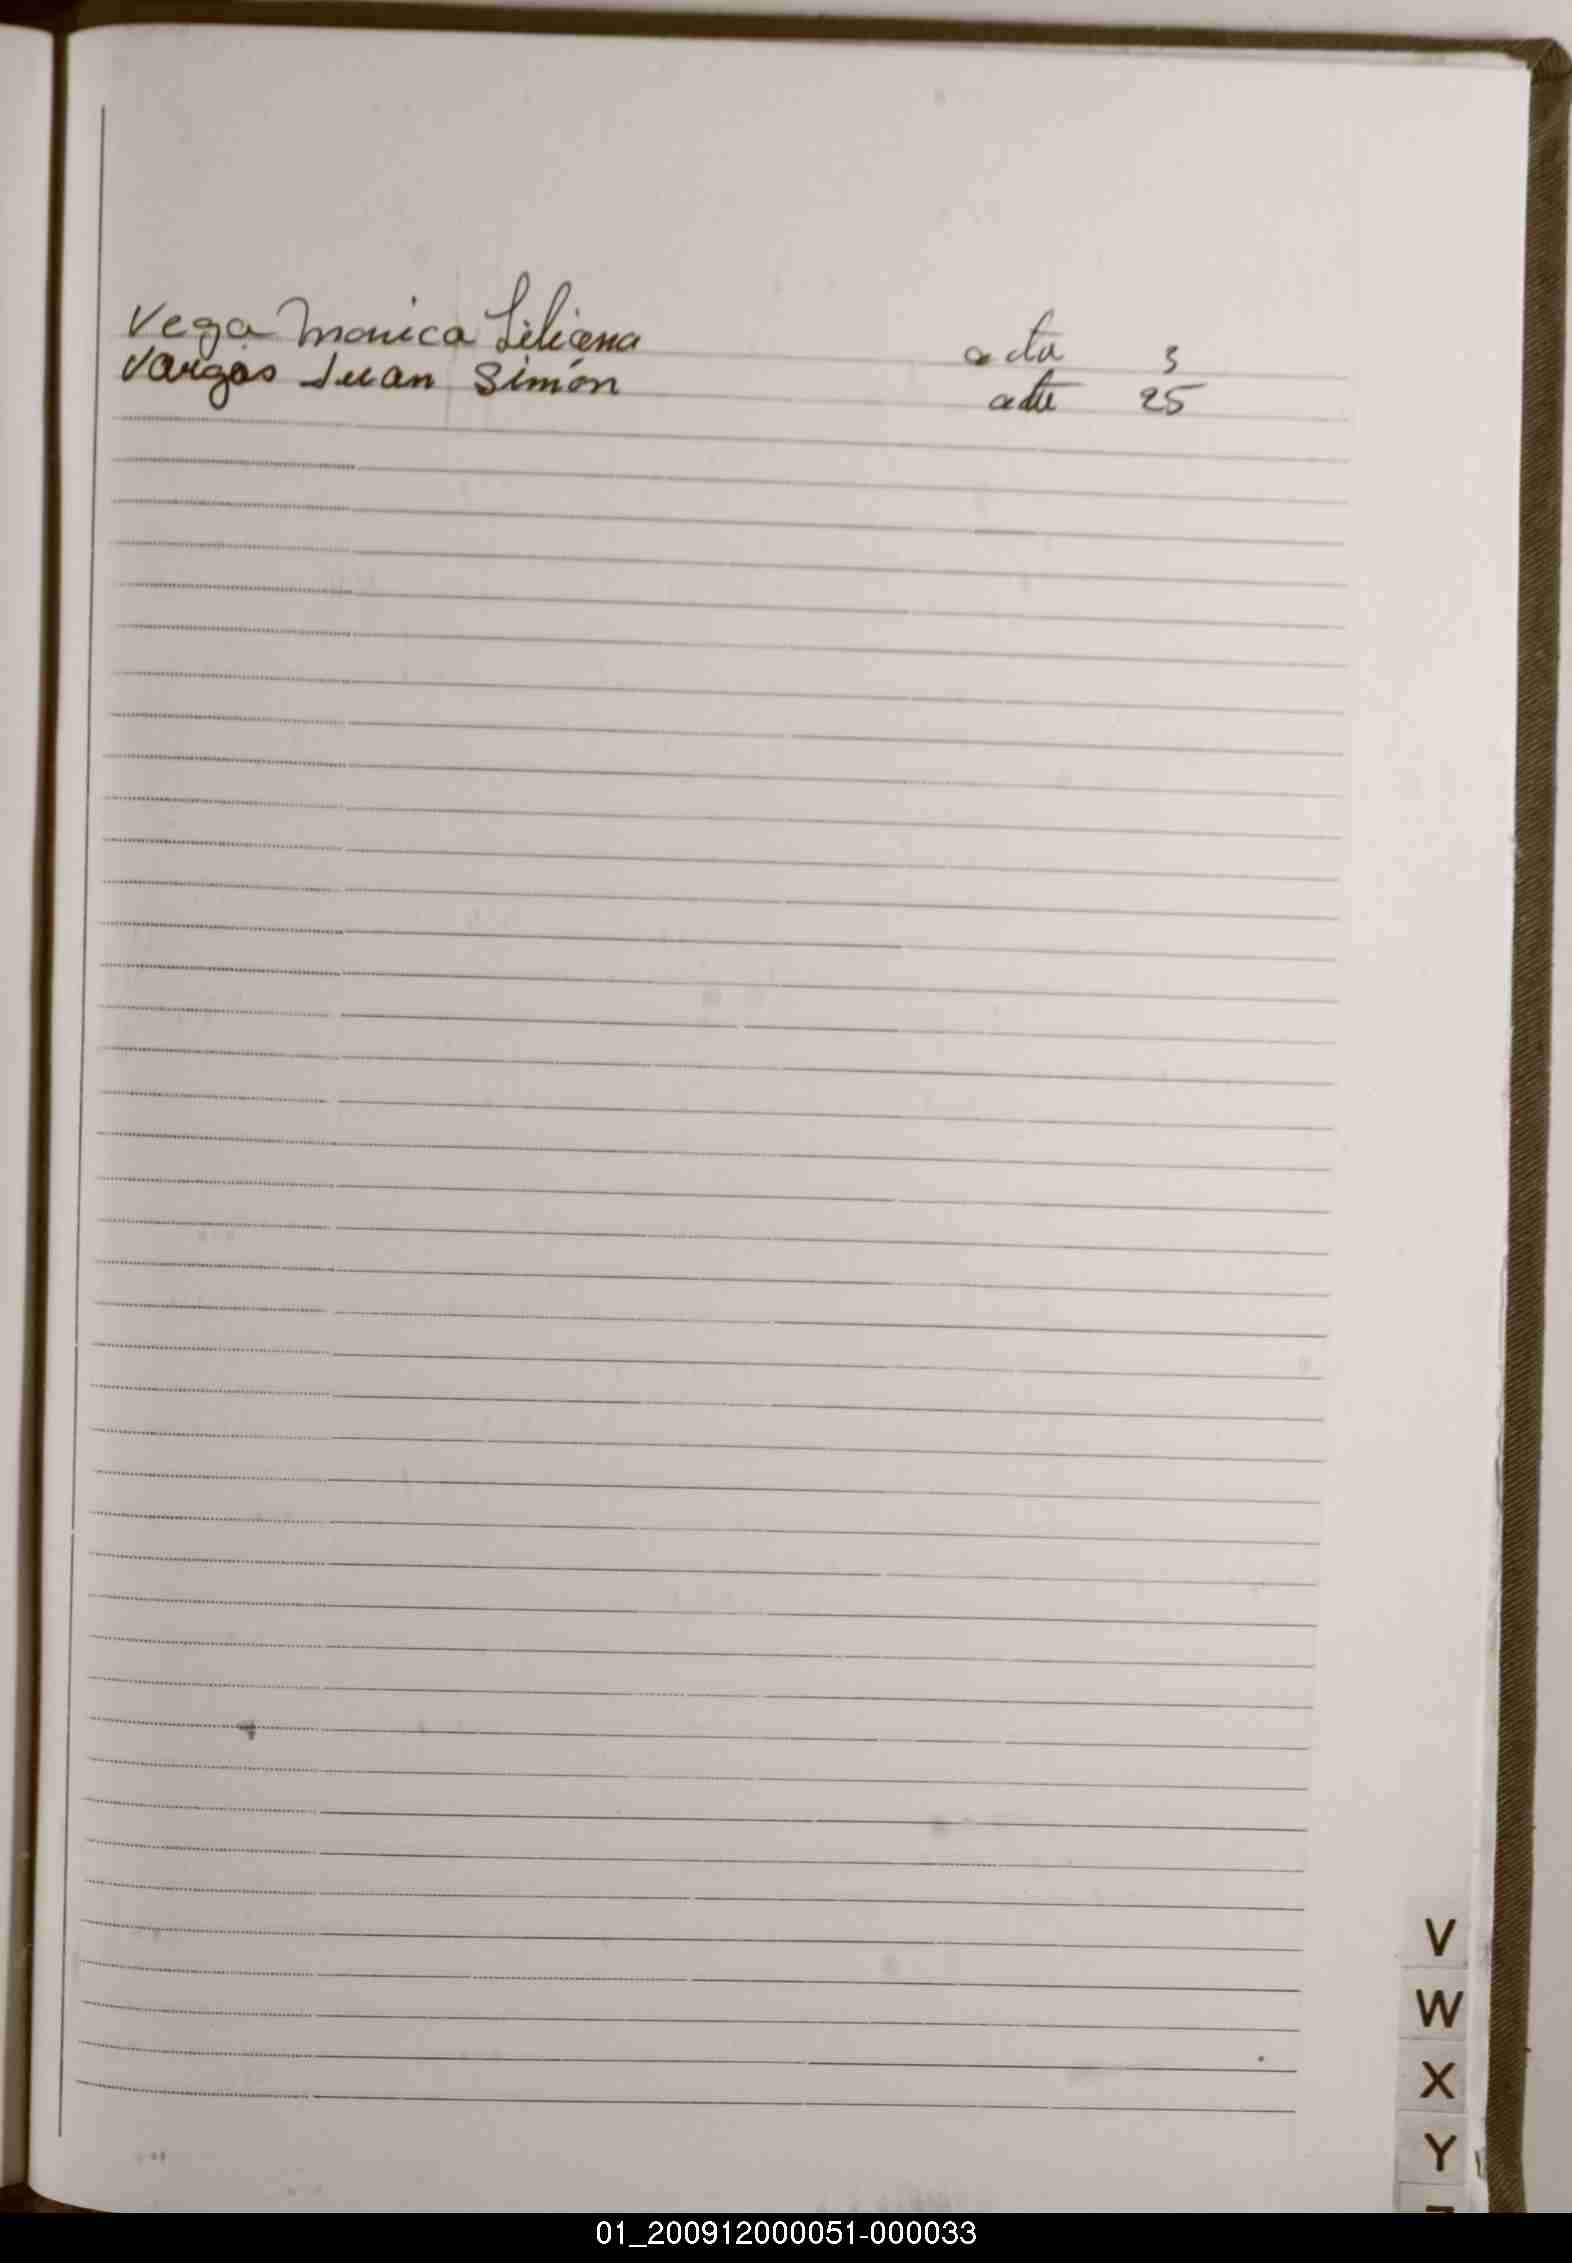 Vega Monica Liliana acta 3
Vargas Juan Simón acta 25
V
W
X
Y
01_200912000051-000033